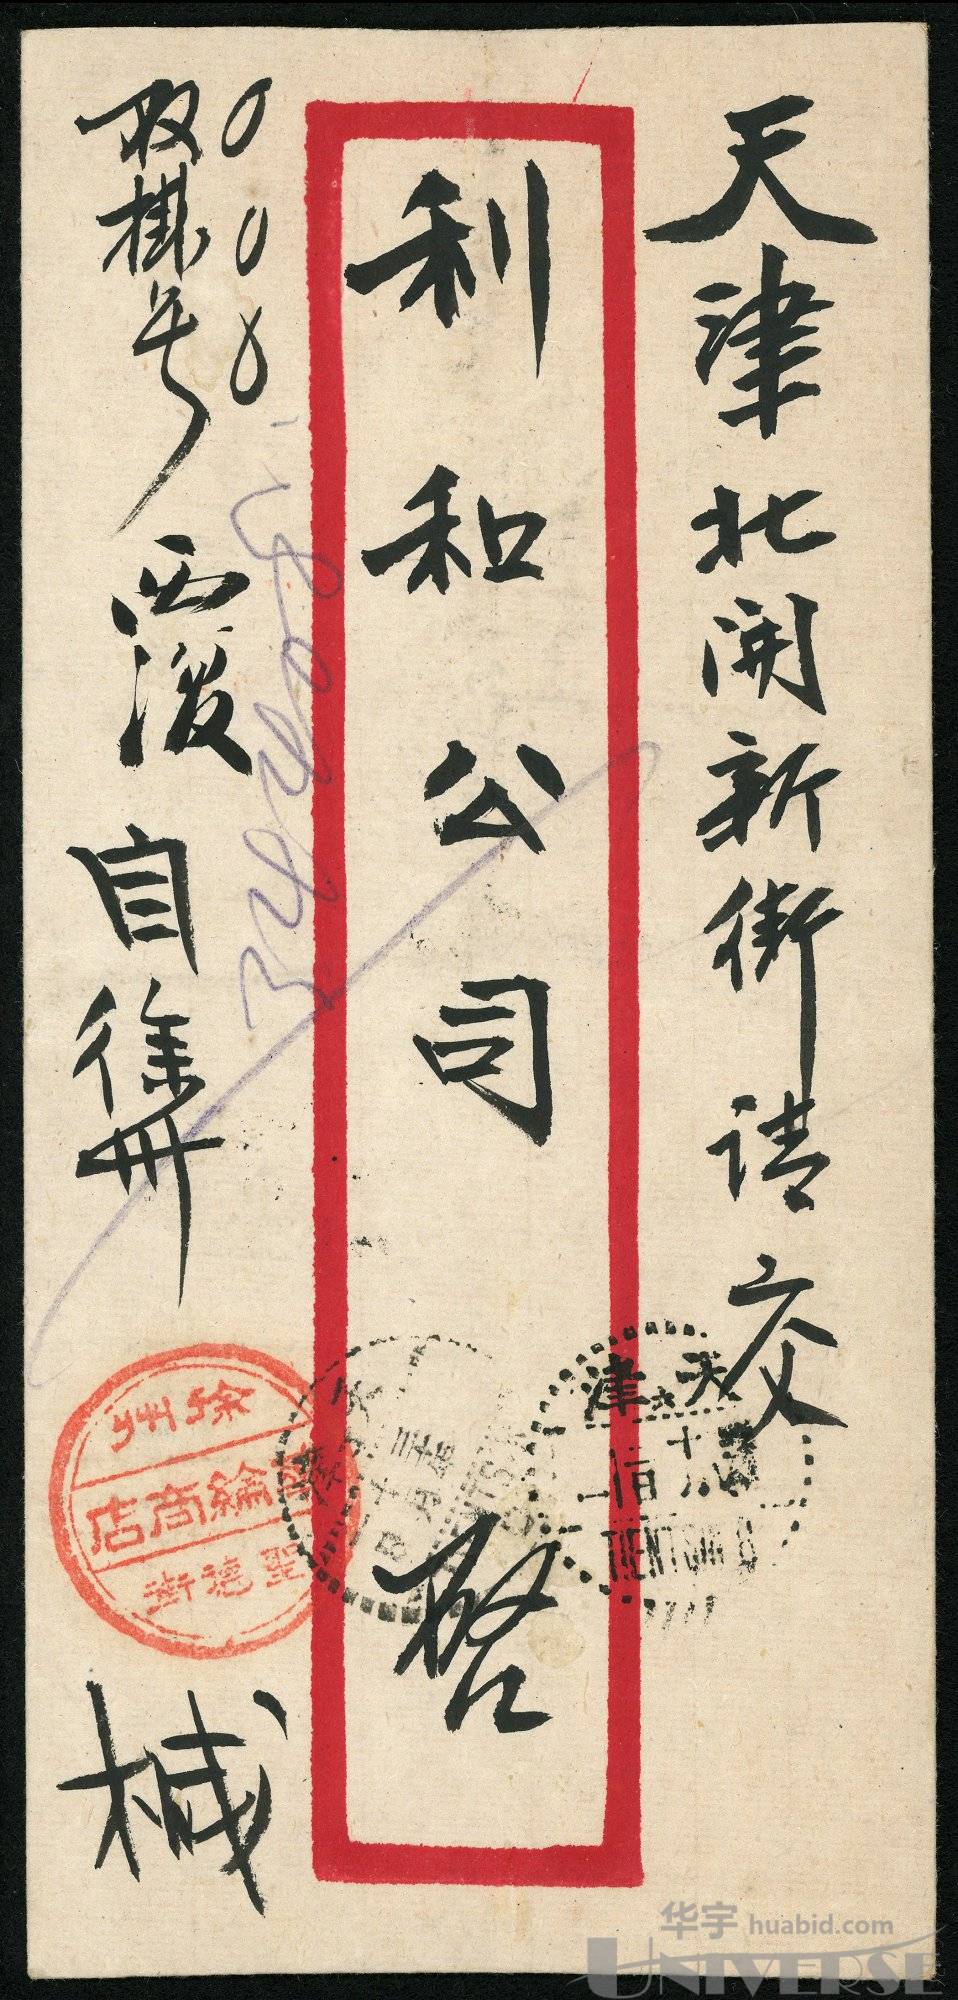 天津北開新街请交
利和公司
啓
双掛号 覆
自徐州
緘
徐州
綸商店
聖德街
天津
十六
TIENTSIN
华宇 huabid.com
UNIVERSE